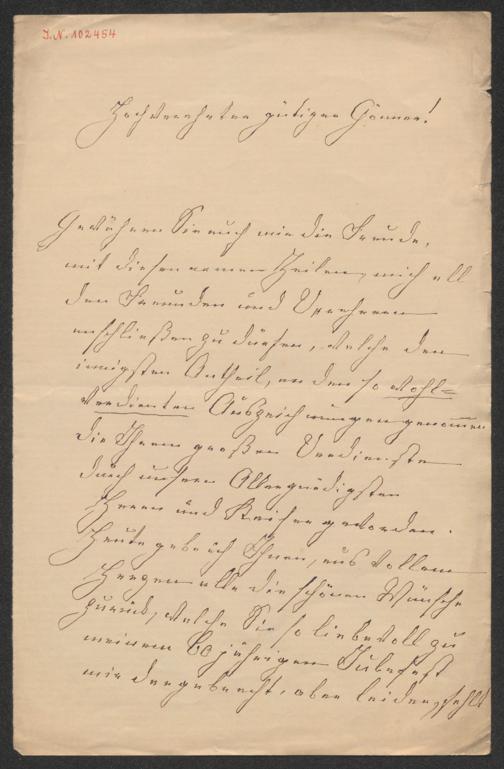 I.N. 102454
Hochverehrter gütiger Gönner!
Gewähren Sie auch mir die Freude,
mit diesen armen Zeilen, mich all
den Freunden und Verehrern
anschließen zu dürfen, welche den
innigsten Antheil, an den so wohl=
verdienten Auszeichnungen genommen
die Ihrem großen Verdienste
durch unsern Allergnädigsten
Herrn und Kaiser geworden.
Heute geb ich Ihnen, aus vollem
Herzen alle die schönen Wünsche
zurück, welche Sie so liebevoll zu
meinem 60 jährigen Jubefest
mir dargebracht, aber leider, fehlt